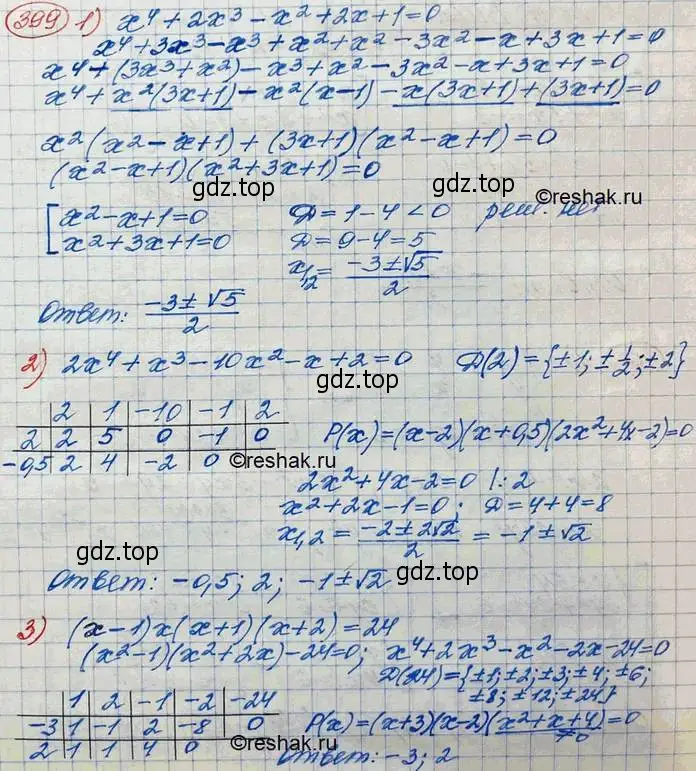 399 1) x⁴ + 2x³ - x² + 2x + 1 = 0
x⁴ + 3x³ - x³ + x² + x² - 3x² - x + 3x + 1 = 0
x⁴ + (3x³ + x²) - x³ + x² - 3x² - x + 3x + 1 = 0
x⁴ + x²(3x+1) - x²(x-1) - x(3x+1) + (3x+1) = 0
x²(x² - x + 1) + (3x+1)(x² - x + 1) = 0
(x² - x + 1)(x² + 3x + 1) = 0
gdz.top gdz.top
©reshak.ru
[ x² - x + 1 = 0 D = 1 - 4 < 0 реш. нет
x² + 3x + 1 = 0 D = 9 - 4 = 5
x₁,₂ = (-3 ± √5)/2
Ответ: (-3 ± √5)/2
gdz.top
2) 2x⁴ + x³ - 10x² - x + 2 = 0 D(2) = {±1; ±1/2; ±2}
gdz.top
2 | 1 | -10 | -1 | 2
2 | 2 | 5 | 0 | -1 | 0 P(x) = (x-2)(x+0,5)(2x²+4x-2) = 0
-0,5 | 2 | 4 | -2 | 0
©reshak.ru
2x² + 4x - 2 = 0 |: 2
x² + 2x - 1 = 0; D = 4 + 4 = 8
x₁,₂ = (-2 ± 2√2)/2 = -1 ± √2
gdz.top gdz.top
Ответ: -0,5; 2; -1 ± √2
©reshak.ru
3) (x-1)x(x+1)(x+2) = 24
(x²-1)(x²+2x) - 24 = 0; x⁴ + 2x³ - x² - 2x - 24 = 0
D(24) = {±1; ±2; ±3; ±4; ±6;
±8; ±12; ±24}
gdz.top
1 | 2 | -1 | -2 | -24
-3 | 1 | -1 | 2 | -8 | 0 P(x) = (x+3)(x-2)(x²+x+4) = 0
≠0
2 | 1 | 1 | 4 | 0
Ответ: -3; 2
©reshak.ru
gdz.top